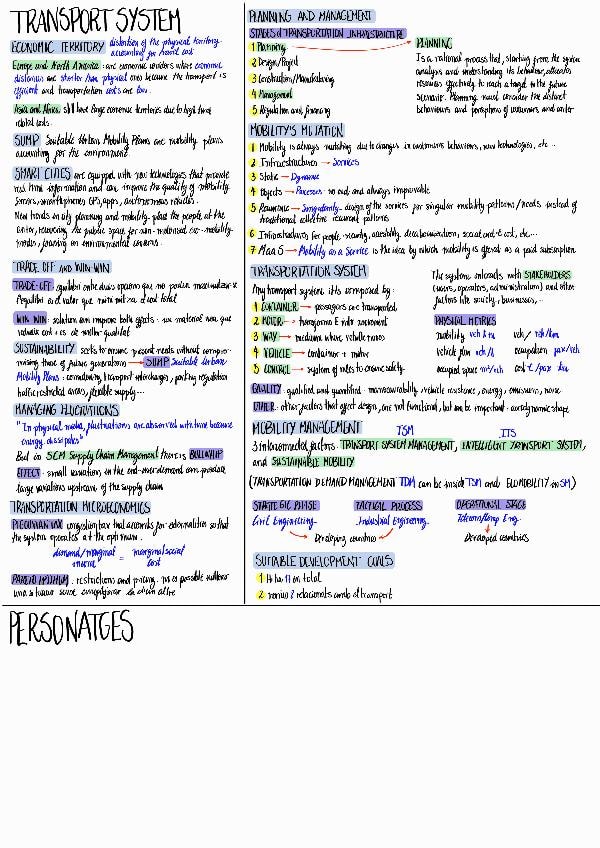 TRANSPORT SYSTEM
ECONOMIC TERRITORY distortion of the physical territory
accounting for travel cost
Europe and North America: are economic leaders where economic
distances are shorter than physical ones because the transport is
efficient and transportation costs are low.
Asia and Africa still have large economic territories due to high travel
related costs.
SUMP Suitable Urban Mobility Plans are mobility plans
accounting for the environment.
SMART CITIES are equipped with new technologies that provide
real time information and can improve the quality of mobility.
Sensors, smartphones GPS, apps, autonomous vehicles.
New trends on city planning and mobility place the people at the
center, recovering the public space for non-motorised eco-mobility
modes, focusing on environmental concerns.
TRADE-OFF AND WIN-WIN
TRADE-OFF: equilibri entre dues opcions que no poden maximitzar-se
l'equilibri and valor que minimitza el cost total
WIN WIN: solution can improve both effects
SUSTAINABILITY seeks to ensure present needs without compro-
mising those of future generations → SUMP Suitable Urban
Mobility Plans: carpooling, transport interchanges, parking regulation
traffic restricted areas, flexible supply...
MANAGING FLUCTUATIONS
"In physical media, fluctuations are absorbed with time because
energy dissipates"
But in SCM Supply Chain Management there is BULLWHIP
EFFECT: small variations in the end-user demand can produce
large variations upstream of the supply chain
TRANSPORTATION MICROECONOMICS
PIGOUVIAN TAX congestion tax that accounts for externalities so that
the system operates at the optimum.
demand/marginal = marginal social
cost
PARETO OPTIMUM: restrictions and pricing. no és possible millorar
una a
PLANNING AND MANAGEMENT
STAGES OF TRANSPORTATION INFRASTRUCTURE
1 Planning
2 Design/Project
3 Construction/Manufacturing
4 Management
5 Regulation and financing
PLANNING
Is a rational process that, starting from the system
analysis and understanding its behaviour, allocates
resources effectively to reach a target in the future
scenario. Planning must consider the distinct
behaviours and perceptions of consumers and
MOBILITY'S MUTATION
1 Mobility is always mutating due to changes in customers behaviors, new technologies, etc...
2 Infrastructures → Services
3 Static → Dynamic
4 Objects → Processes: no end and always improvable
5 Recurrence → Singularity: design of the services per singular mobility patterns/needs instead of
traditional collective recurrent patterns
6 Infrastructures for people: security, accesibility, decarbonization, social cost-t cost, etc...
7 MaaS → Mobility as a Service is the idea by which mobility is offered as a paid subscription
TRANSPORTATION SYSTEM
Any transport system it is composed by:
1 CONTAINER → passengers are transported
2 MOTOR → transforms E into movement
3 WAY → medium where vehicle moves
4 VEHICLE → container + motor
5 CONTROL → system of rules to ensure safety
The systems interacts with STAKEHOLDERS
(users, operators, administration) and other
factors like society, businesses,...
PHYSICAL METRICS
mobility veh·km veh/ veh/km
vehicle flow veh/h occupation pax/veh
occupied space m²/veh cost €/pax km
QUALITY: qualified and quantified: manoeuvrability, vehicle resistance, energy, emissions, noise
OTHER: other factors that affect design, are not functional, but can be important: aerodynamic shape
MOBILITY MANAGEMENT TSM ITS
3 interconnected factors: TRANSPORT SYSTEM MANAGEMENT, INTELLIGENT TRANSPORT SYSTEM,
and SUSTAINABLE MOBILITY
(TRANSPORTATION DEMAND MANAGEMENT TDM can be inside TSM and ECOMOBILITY in SM)
STRATEGIC PHASE TACTICAL PROCESS OPERATIONAL STAGE
Civil Engineering Industrial Engineering Telecom/Comp Eng.
→ Developing countries → Developed countries
SUITABLE DEVELOPMENT GOALS
1 Hi ha 17 en total
2 només 8 relacionats amb el transport
PERSONATGES